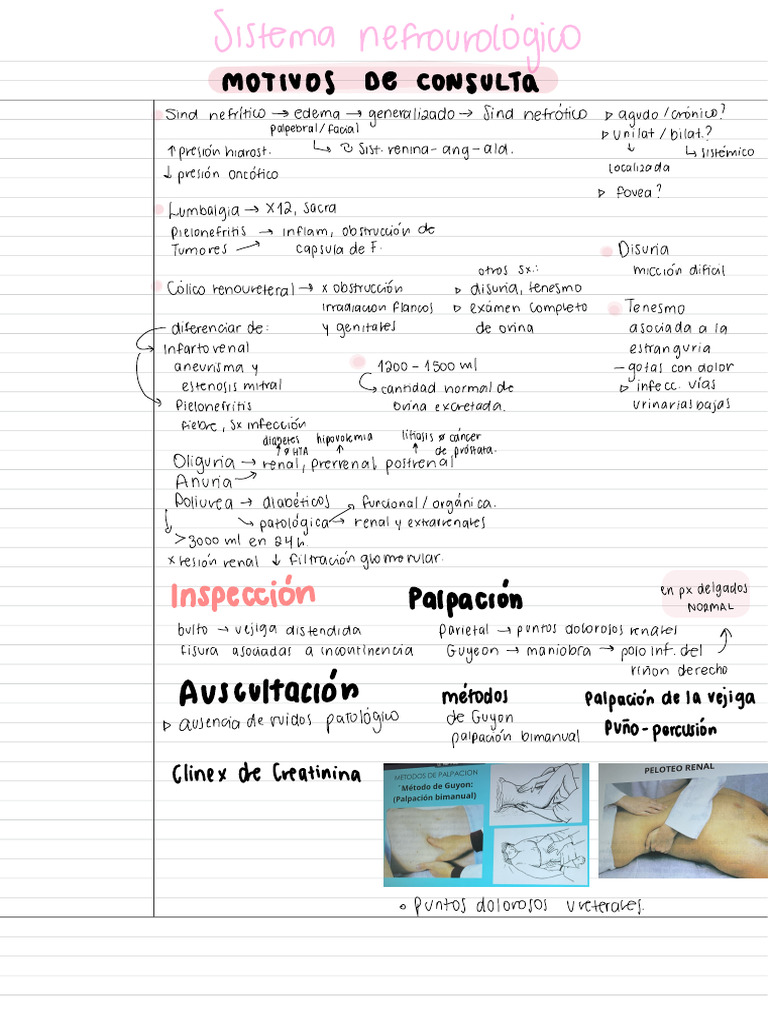 Sistema nefrourológico
MOTIVOS DE CONSULTA
Sind nefrítico → edema → generalizado → Sind nefrótico
palpebral/facial
↑ presión hidrost.
↳ Sist. renina-ang-ald.
↓ presión oncótico
▷ agudo/crónico?
▷ unilat/bilat.?
↓ ↳ sistémico
localizada
▷ fovea?
Lumbalgia → X12, sacra
Pielonefritis → inflam, obstrucción de
Tumores → capsula de F.
Cólico renoureteral → x obstrucción
irradiacion flancos
y genitales
otros sx.:
▷ disuria, tenesmo
▷ exámen completo
de orina
Disuria
micción dificil
Tenesmo
asociada a la
estranguria
– gotas con dolor
▷ infecc. vías
urinarias bajas
diferenciar de:
Infarto renal
aneurisma y
estenosis mitral
Pielonefritis
fiebre, sx infección
1200 – 1500 ml
cantidad normal de
orina excretada.
diabetes hipovolemia litiasis o cáncer
↑ o HTA ↑ ↑ de próstata.
Oliguria → renal, prerrenal postrenal
Anuria →
Poliurea → diabéticos
↘ patológica → renal y extrarrenales
funcional/orgánica.
> 3000 ml en 24 h
x lesión renal ↓ filtración glomerular.
Inspección
bulto → vejiga distendida
fisura asociadas a incontinencia
Palpación
en px delgados
NORMAL
Parietal → puntos dolorojos renales
Guyeon → maniobra → polo inf. del
riñon derecho
Auscultación
▷ ausencia de ruidos patológico
métodos
de Guyon
palpación bimanual
Palpación de la vejiga
Puño-percusión
Clinex de Creatinina
MÉTODOS DE PALPACION
*Método de Guyon:
(Palpación bimanual)
PELOTEO RENAL
∘ Puntos dolorosos ureterales.